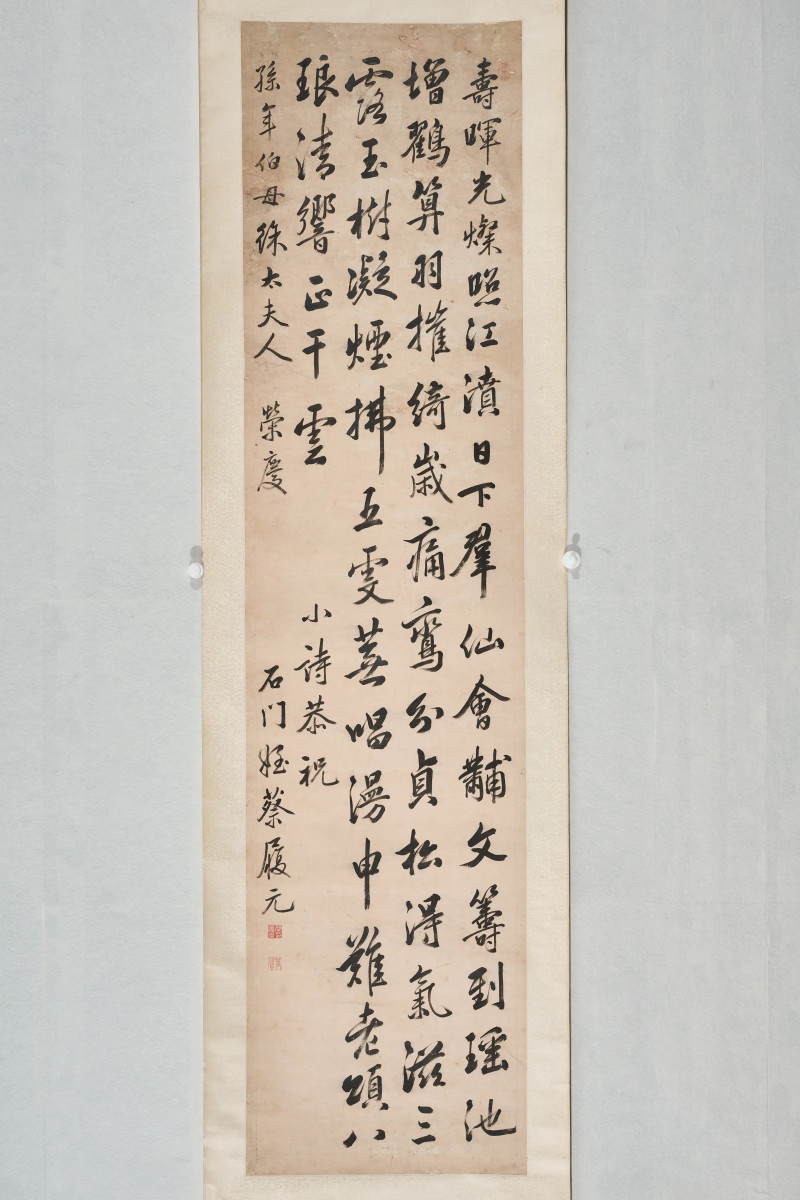 壽暉光燦照江濆日下羣仙會黼文籌到瑶池
增鶴算羽摧綺歲痛鸞分貞松得氣滋三
露玉樹凝煙拂五雯蕪唱漫申難老頌八
琅清響正干雲 小詩恭祝
孫年伯母徐太夫人 榮慶 石門姪蔡履元